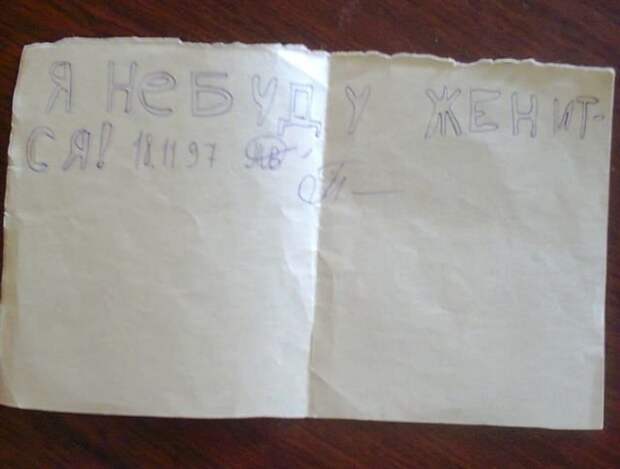 Я НЕ БУДУ ЖЕНИТ-
СЯ! 18.11.97